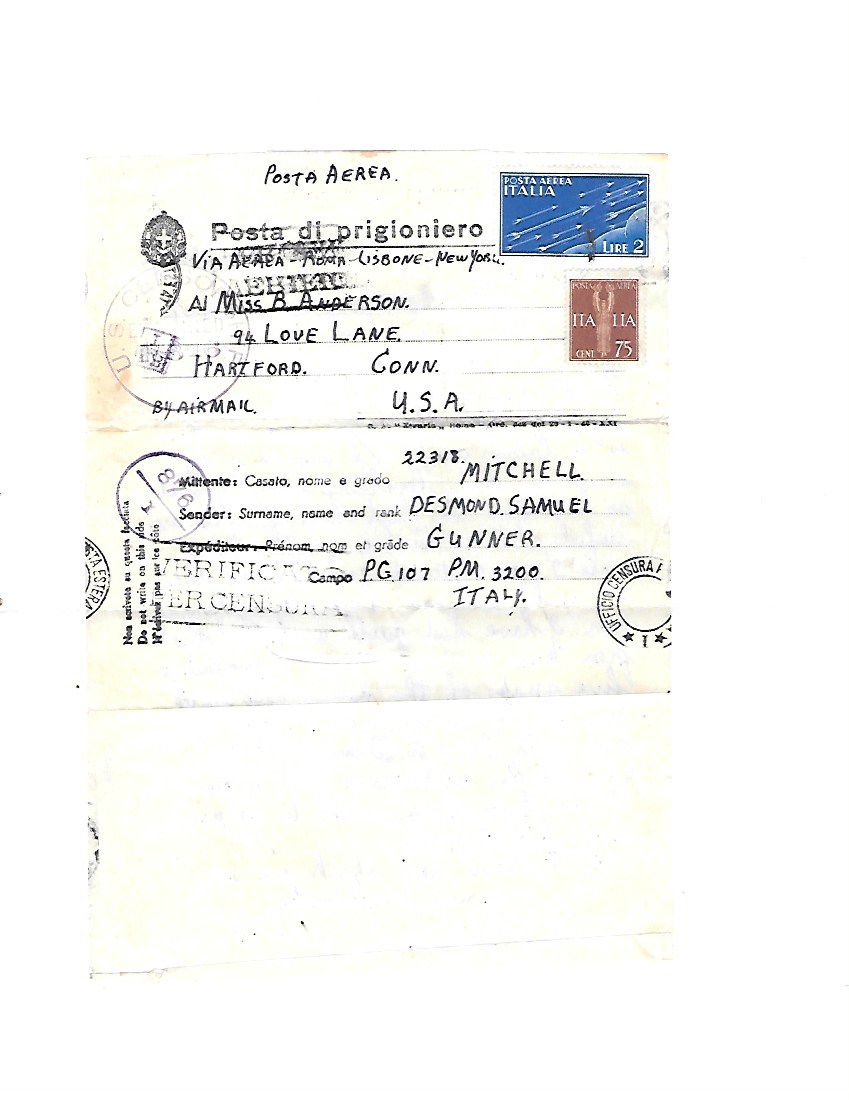 POSTA AEREA.
POSTA AEREA
ITALIA
LIRE 2
Posta di prigioniero
VIA AEREA - ROMA - LISBONE - NEW YORK.
Al MISS B. ANDERSON.
POSTA AEREA
ITA LIA
CENT. 75
94 LOVE LANE.
HARTFORD. CONN.
BY AIRMAIL. U.S.A.
22318.
Mittente: Casato, nome e grado MITCHELL.
Sender: Surname, name and rank DESMOND. SAMUEL
Expéditeur: Prénom, nom et grade GUNNER.
Campo P.G. 107 P.M. 3200.
ITALY.
VERIFICATO
PER CENSURA
Non scrivete su questa facciata
Do not write on this side
N'écrivez pas sur ce côté
8/6
UFFICIO CENSURA
★ 1 ★